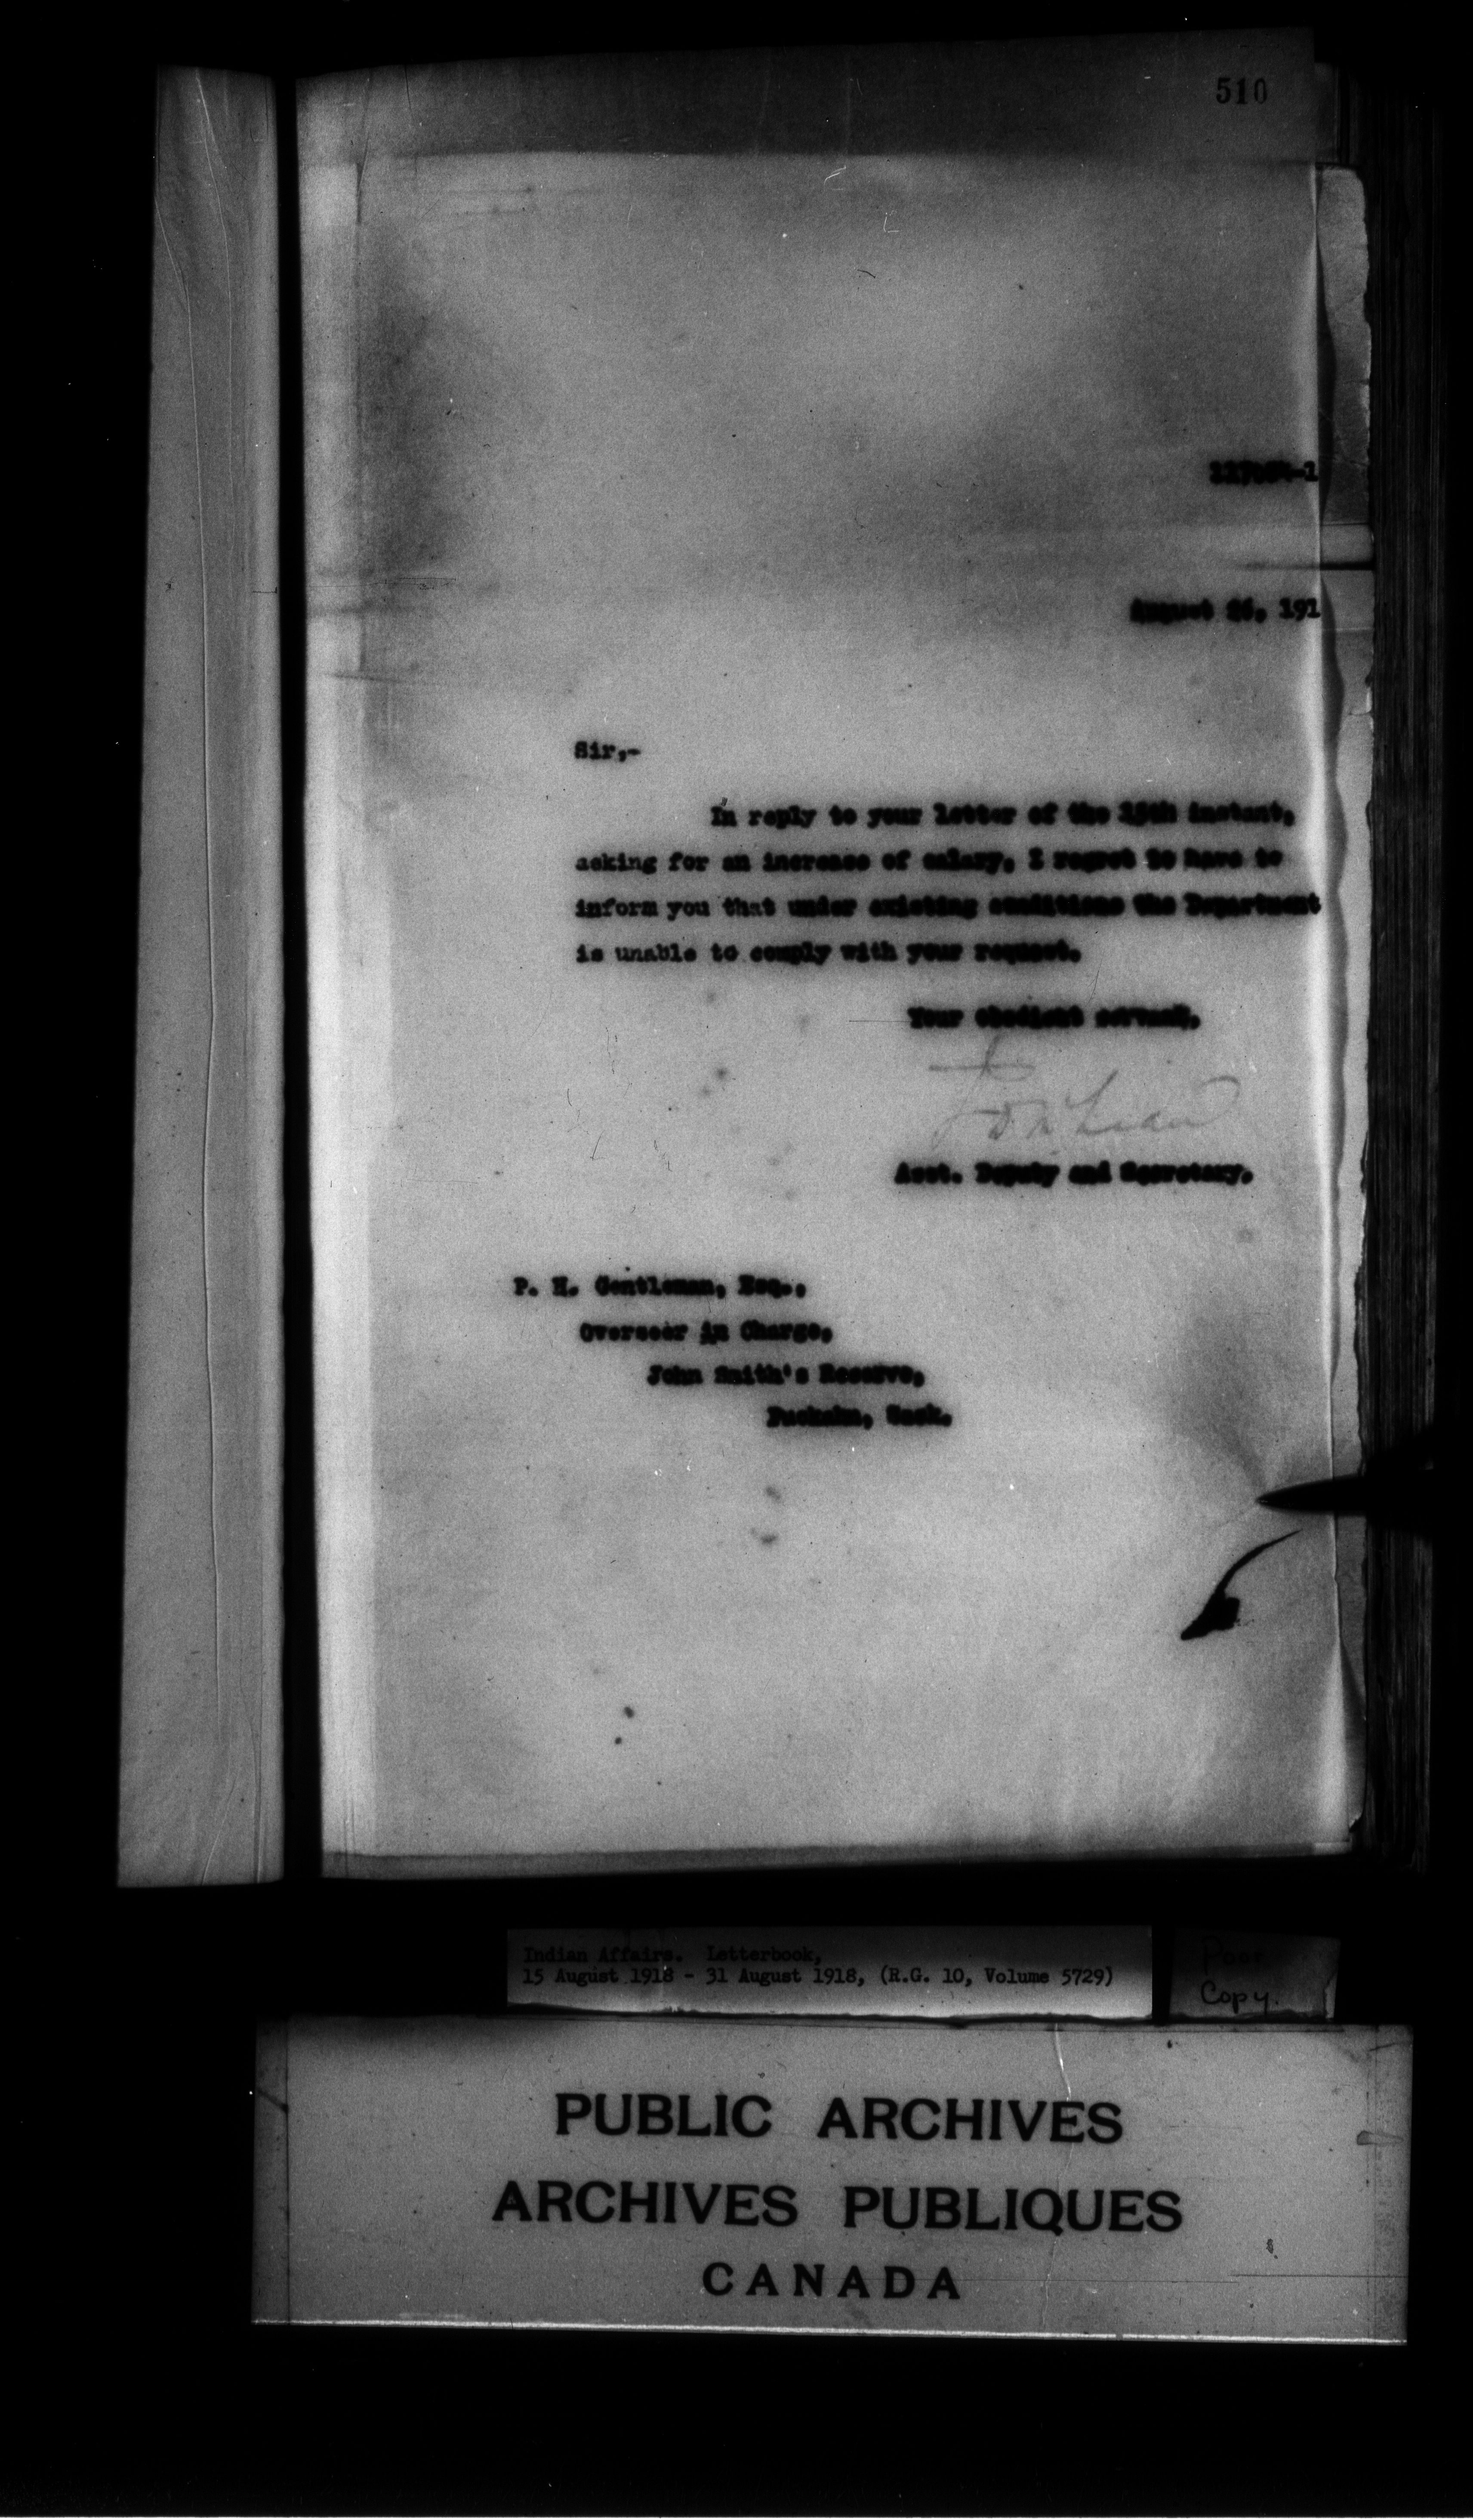 510
August 26, 191
Sir,-
In reply to your letter of the 15th instant,
asking for an increase of salary, I regret to have to
inform you that under existing conditions the Department
is unable to comply with your request.
Your obedient servant,
Asst. Deputy and Secretary.
P. H. Gentleman, Esq.,
Overseer in Charge,
John Smith's Reserve,
Sask.
Indian Affairs. Letterbook,
15 August 1918 - 31 August 1918, (R.G. 10, Volume 5729)
Poor
Copy.
PUBLIC ARCHIVES
ARCHIVES PUBLIQUES
CANADA